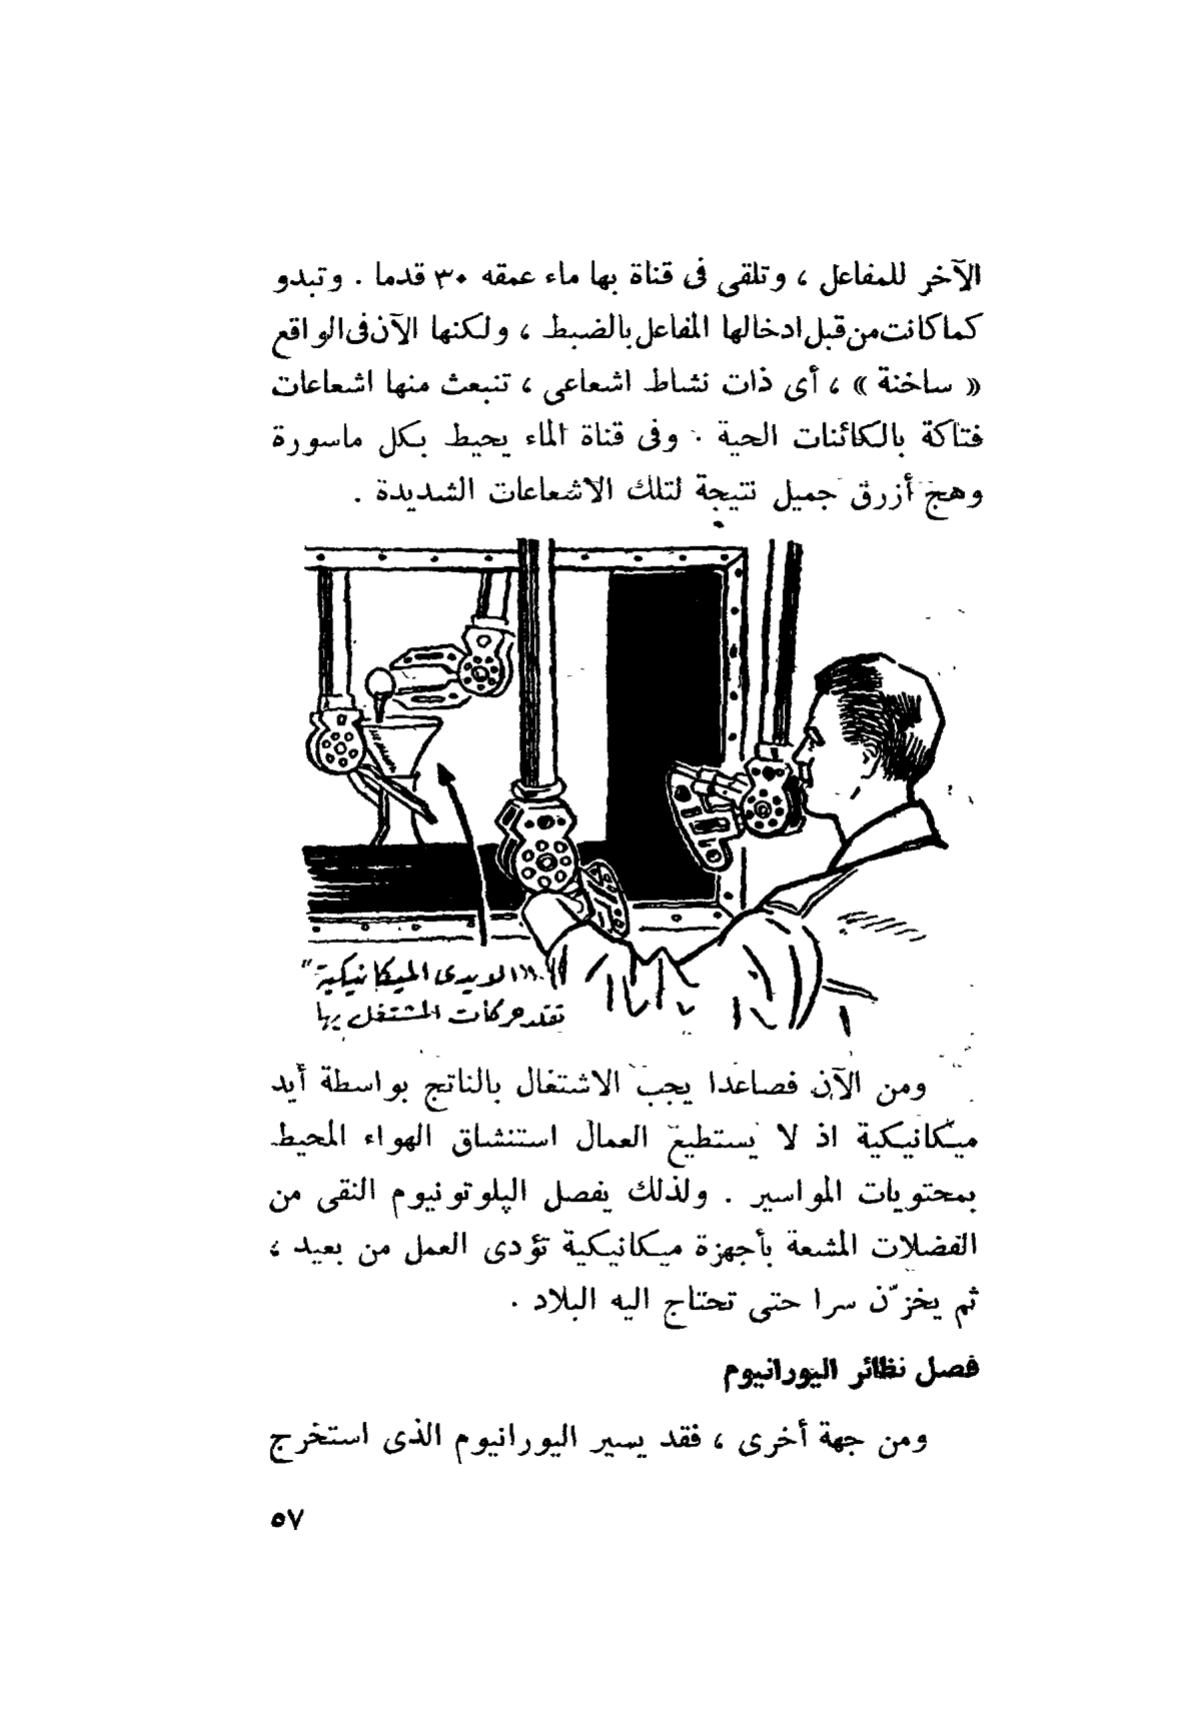 الآخر للمفاعل ، وتلقى فى قناة بها ماء عمقه ٣٠ قدما . وتبدو
كما كانت من قبل ادخالها المفاعل بالضبط ، ولكنها الآن فى الواقع
« ساخنة » ، أى ذات نشاط اشعاعى ، تنبعث منها اشعاعات
فتاكة بالكائنات الحية . وفى قناة الماء يحيط بكل ماسورة
وهج أزرق جميل نتيجة لتلك الاشعاعات الشديدة .
"الايدى الميكانيكية"
تقلد حركات المشتغل بها
ومن الآن فصاعدا يجب الاشتغال بالناتج بواسطة أيد
ميكانيكية اذ لا يستطيع العمال استنشاق الهواء المحيط
بمحتويات المواسير . ولذلك يفصل البلوتونيوم النقى من
الفضلات المشعة بأجهزة ميكانيكية تؤدى العمل من بعيد ،
ثم يخزّن سرا حتى تحتاج اليه البلاد .
فصل نظائر اليورانيوم
ومن جهة أخرى ، فقد يسير اليورانيوم الذى استخرج
٥٧